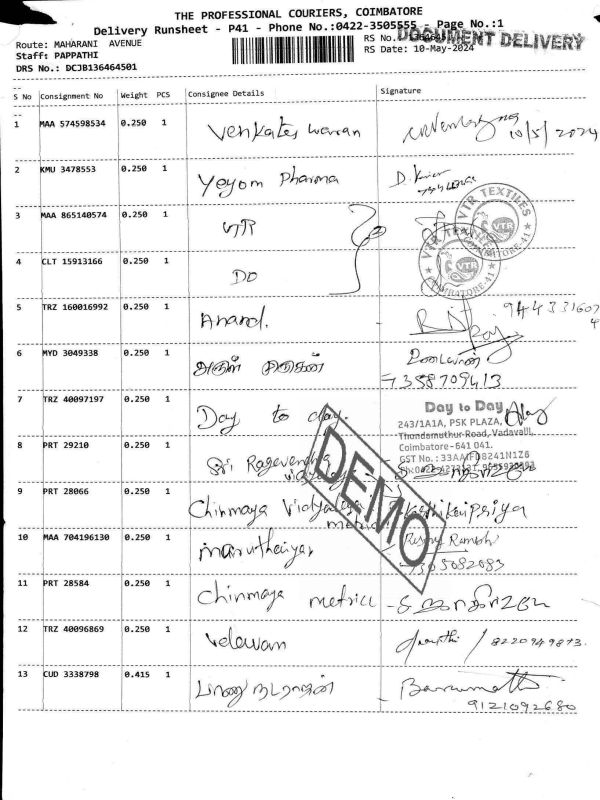 THE PROFESSIONAL COURIERS, COIMBATORE
Delivery Runsheet - P41 - Phone No.:0422-3505555 Page No.:1
Route: MAHARANI AVENUE
RS No.:
DOCUMENT DELIVERY
Staff: PAPPATHI
RS Date: 10-May-2024
DRS No.: DCJB136464501
S No Consignment No Weight PCS Consignee Details Signature
1 MAA 574598534 0.250 1 Venkates waran 10/5/2024
2 KMU 3478553 0.250 1 Yeyom Pharma D.
3 MAA 865140574 0.250 1 VTR
VTR TEXTILES
COIMBATORE-41
4 CLT 15913166 0.250 1 DO
5 TRZ 160016992 0.250 1 Anand.
6 MYD 3049338 0.250 1 அருள் முருகன்
7358709413
7 TRZ 40097197 0.250 1 Day to day.
Day to Day
243/1A1A, PSK PLAZA,
Thondamuthur Road, Vadavalli,
Coimbatore-641 041.
8 PRT 29210 0.250 1 Sri Ragavendra
DEMO
9 PRT 28066 0.250 1 Chinmaya Vidyalaya
10 MAA 704196130 0.250 1 Ramesh
11 PRT 28584 0.250 1 Chinmaya metricu
12 TRZ 40096869 0.250 1 Velavan / 8220949873.
13 CUD 3338798 0.415 1 பானு நடராஜன்
9121092680